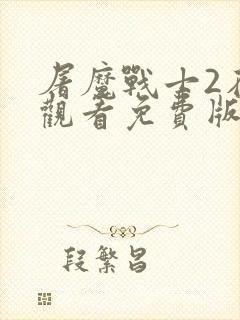 屠魔戰士2在
觀看免費版
段繁昌